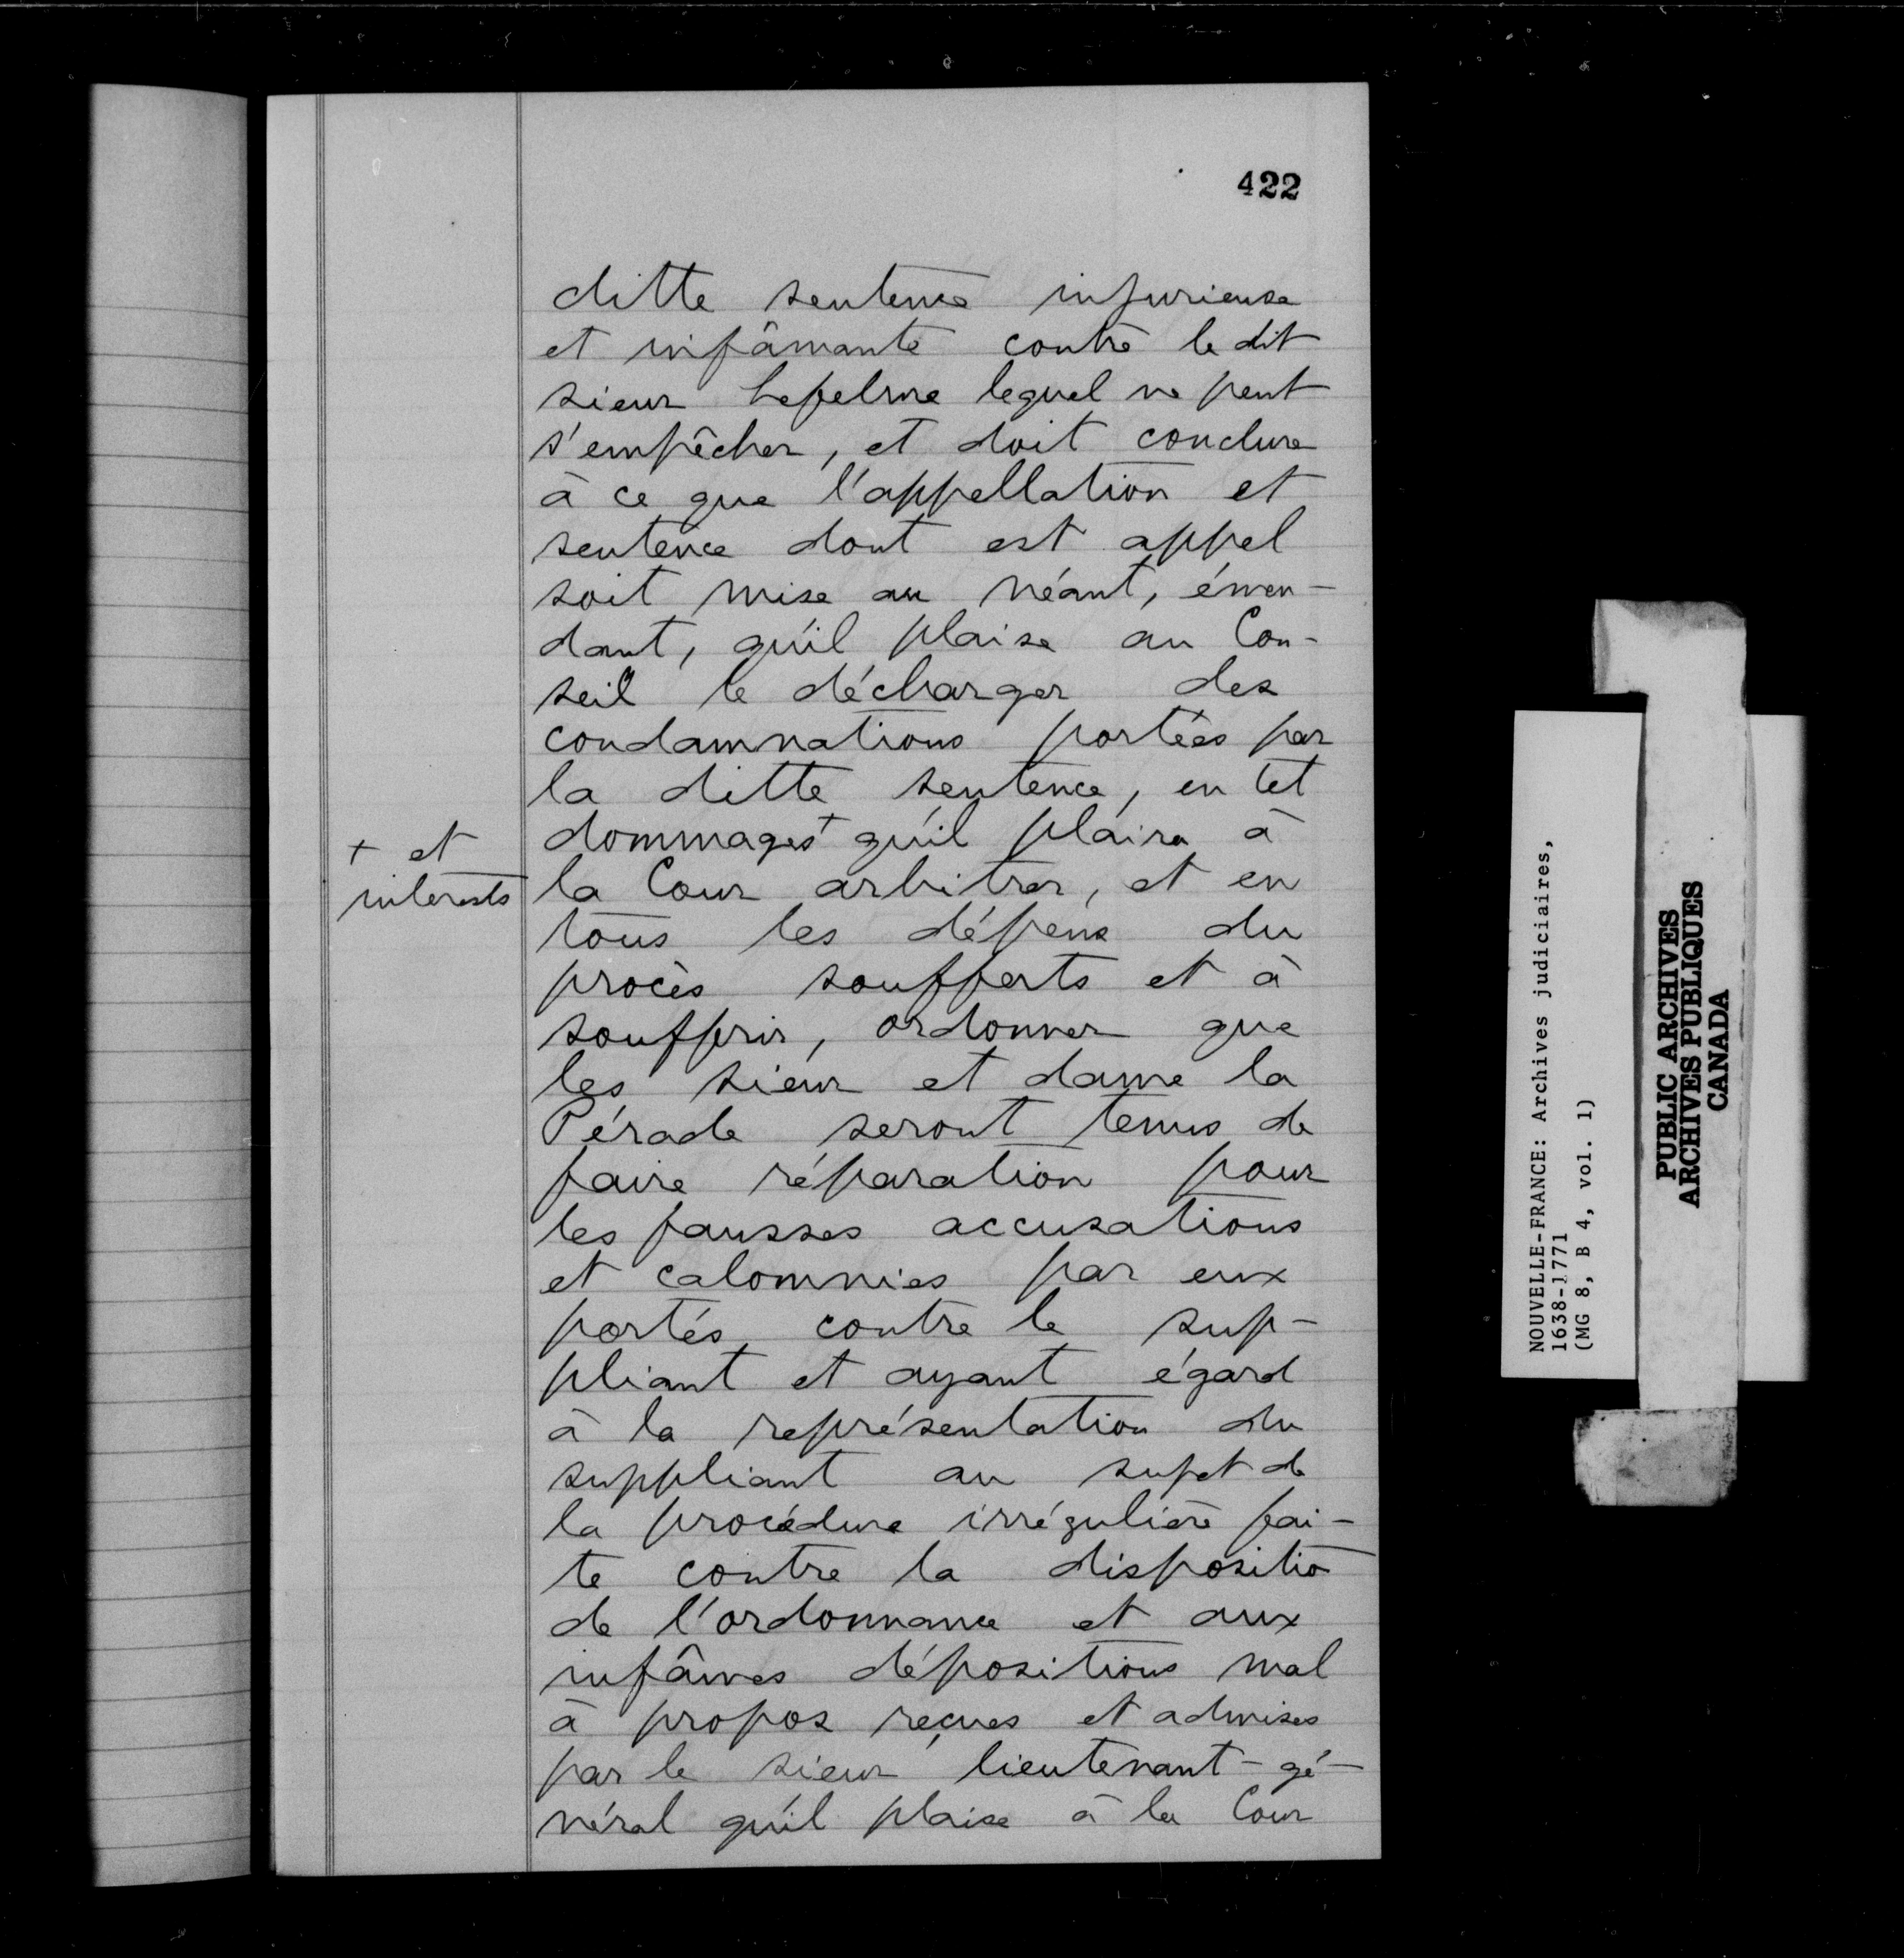 422
ditte sentence injurieuse
et infâmante contre le dit
sieur Lepelme lequel ne peut
s'empêcher, et doit conclure
à ce que l'appellation et
sentence dont est appel
soit mise au néant, émen-
dant, qu'il plaise au Con-
seil le décharger des
condamnations portées par
la ditte sentence, en tel
dommages + qu'il plaira à
+ et
interests
la Cour arbitrer, et en
tous les dépens du
procès soufferts et à
souffrir, ordonner que
les sieur et dame la
Pérade seront tenus de
faire réparation pour
les fausses accusations
et calomnies par eux
portés contre le sup-
pliant et ayant égard
à la représentation du
suppliant au sujet de
la procédure irrégulière fai-
te contre la dispositio
de l'ordonnance et aux
infâmes dépositions mal
à propos reçues et admises
par le sieur lieutenant-gé-
néral qu'il plaise à la Cour
NOUVELLE-FRANCE: Archives judiciaires,
1638-1771
(MG 8, B 4, vol. 1)
PUBLIC ARCHIVES
ARCHIVES PUBLIQUES
CANADA